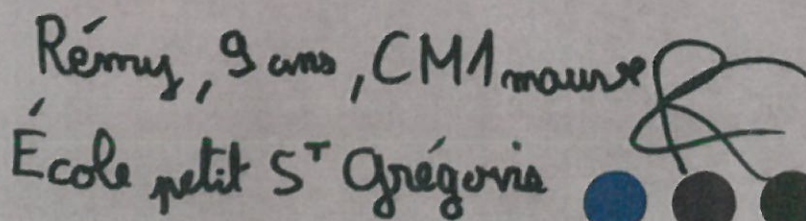 Rémy, 9 ans, CM1 mauve
École petit Sᵀ Grégoris